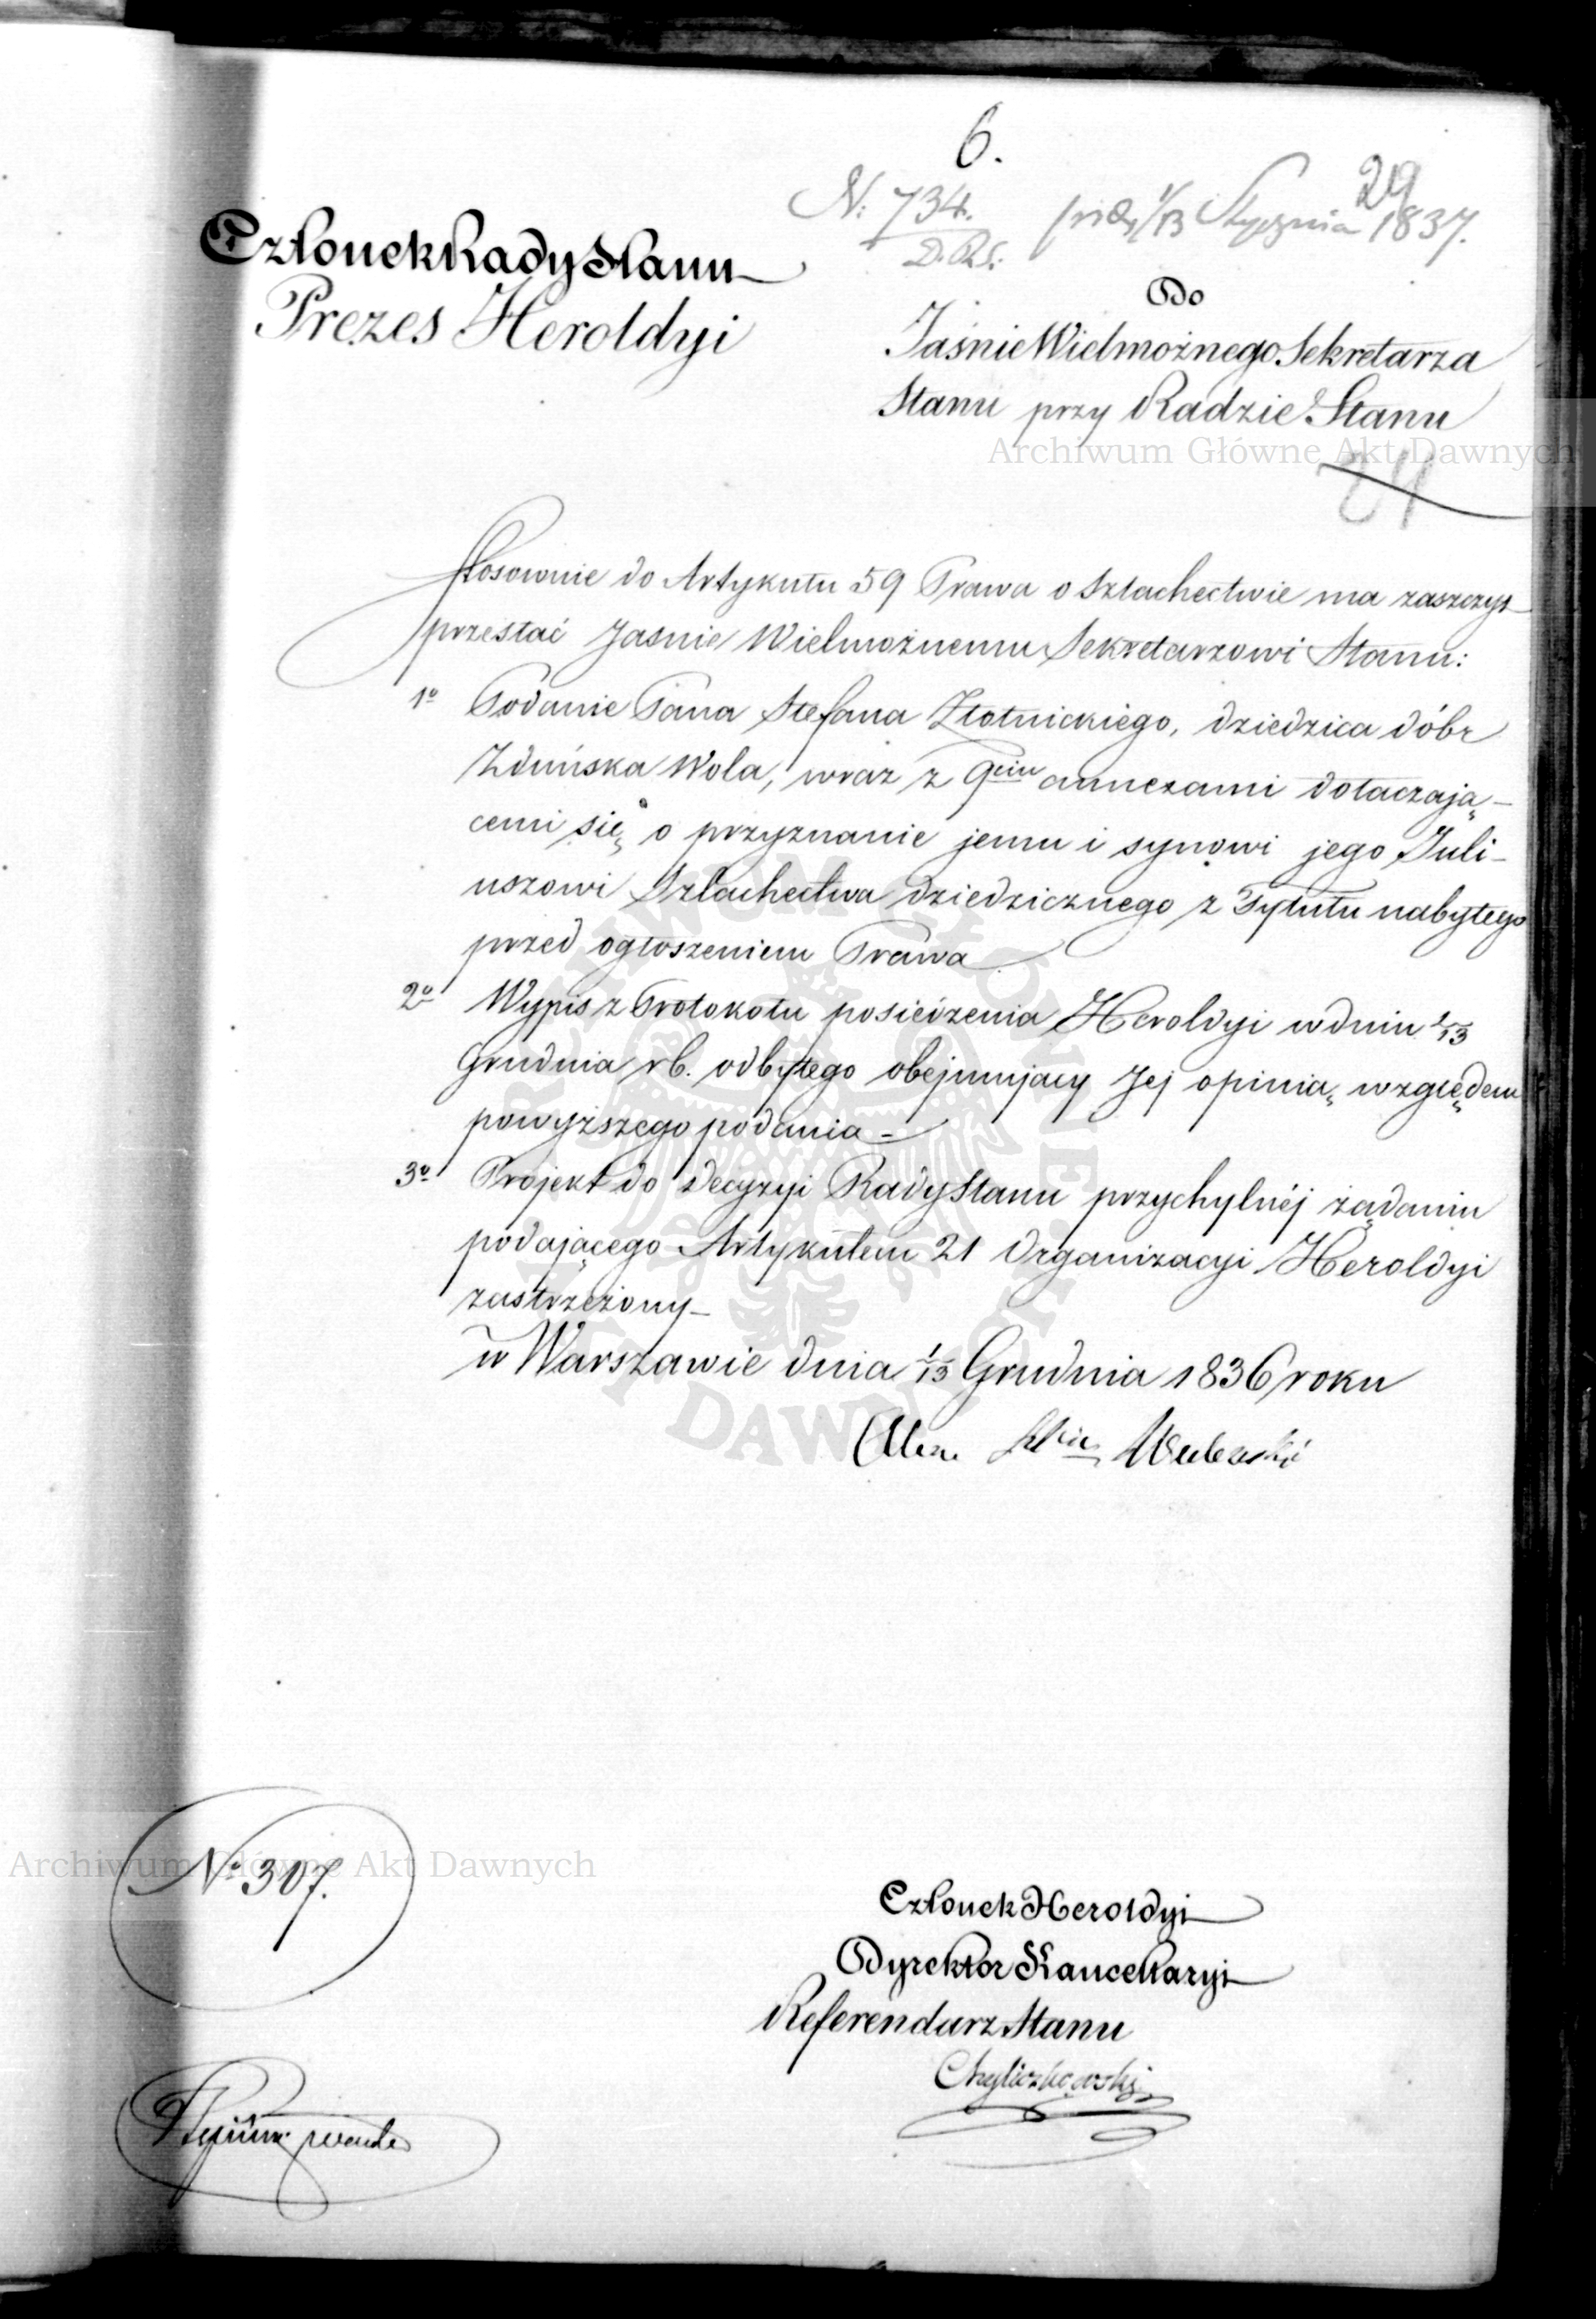 6.
N: 734.
D.R.S.
1/13 Stycznia 1837.
29
Członek Rady Stanu
Prezes Heroldyi
Do
Jaśnie Wielmożnego Sekretarza
Stanu przy Radzie Stanu
Archiwum Główne Akt Dawnych
24
Stosownie do Artykułu 59 Prawa o Szlachectwie ma zaszczyt
przesłać Jaśnie Wielmożnemu Sekretarzowi Stanu:
1o Podanie Pana Stefana Złotnickiego, dziedzica dóbr
Zduńska Wola, wraz z 9ciu annexami dołaczają-
cemi się o przyznanie jemu i synowi jego Juli-
uszowi Szlachectwa dziedzicznego z Tytułu nabytego
przed ogłoszeniem Prawa
2o Wypis z Protokołu posiedzenia Heroldyi w dniu 1/13
Grudnia r.b. odbytego obejmujący Jej opinią względem
powyższego podania -
3o Projekt do decyzyi Rady Stanu przychylnéj żądaniu
podającego Artykułem 21 Organizacyi Heroldyi
zastrzeżony -
w Warszawie dnia 1/13 Grudnia 1836 roku
ARCHIWUM GŁÓWNE AKT DAWNYCH
No 307.
Archiwum Główne Akt Dawnych
Członek Heroldyi
Dyrektor Kancellaryi
Referendarz Stanu
Chyliczkowski